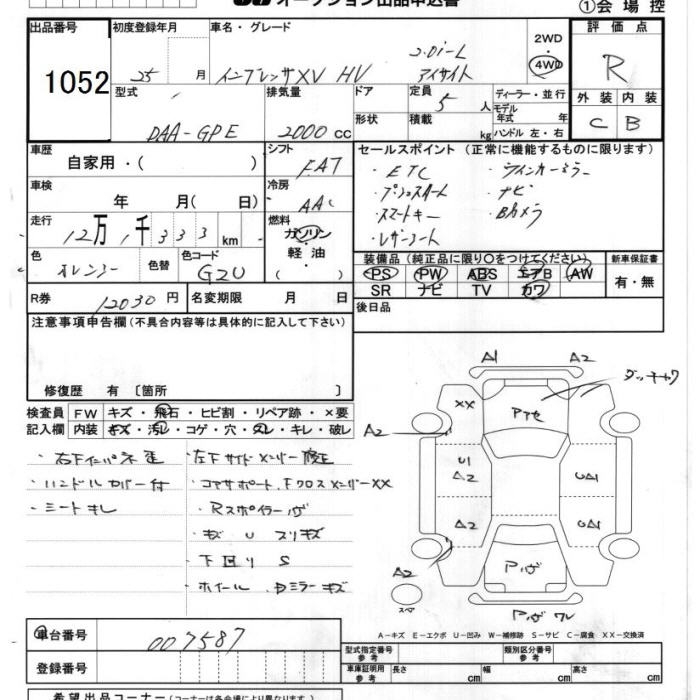 オークション出品申込書
①会場控
出品番号
1052
初度登録年月
25 月
車名・グレード
インプレッサXV HV
2.0i-L
アイサイト
2WD
4WD
評価点
R
外装 内装
C B
型式
DAA-GPE
排気量
2000 cc
ドア
形状
定員
5 人
積載 kg
ディーラー・並行
モデル
年式 年
ハンドル 左・右
車歴
自家用・( )
シフト
FAT
車検
年 月( 日)
冷房
AAC
走行
12万1千333 km
燃料
ガソリン
軽油
色
オレンジー
色替
色コード
GZU
セールスポイント (正常に機能するものに限ります)
・ETC
・プッシュスタート
・スマートキー
・レザーシート
・ウインカーミラー
・ナビ
・Bカメラ
装備品 (純正品に限り○をつけてください)
PS PW ABS エアB AW
SR ナビ TV カワ
新車保証書
有・無
R券
12030 円
名変期限 月 日
後日品
注意事項申告欄 (不具合内容等は具体的に記入して下さい)
修復歴 有 〔箇所 〕
検査員
記入欄
FW キズ・飛石・ヒビ割・リペア跡・×要
内装 キズ・汚レ・コゲ・穴・スレ・キレ・破レ
・右下インパネ歪
・ハンドルカバー付
・シートキレ
・左下サイドメンバー修正
・コアサポート、FクロスメンバーXX
・Rスポイラー
・キズ U スリキズ
・下回り S
・ホイール、ドミラーキズ
A1 A2
XX
A2
U1
A2
A2
UA1
UA1
A2
スペア
A-キズ E-エクボ U-凹み W-補修跡 S-サビ C-腐食 XX-交換済
車台番号
007587
登録番号
型式指定番号
類別区分番号
車庫証明用
参考
長さ cm
幅 cm
高さ cm
希望出品コーナー (コーナーは各会場により異なります)